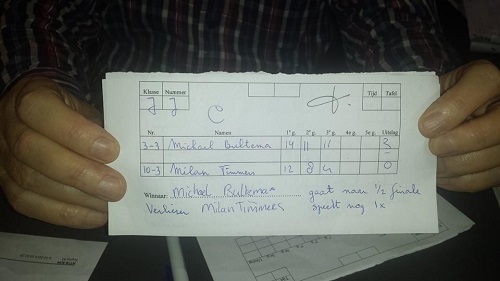 Klasse Nummer Tijd Tafel
J J C
Nr. Namen 1e g. 2e g. 3e g. 4e g. 5e g. Uitslag
3-3 Michael Bultema 14 11 11 3
10-3 Milan Timmers 12 8 4 0
Winnaar Michael Bultema gaat naar 1/2 finale
Verliezer Milan Timmers speelt nog 1x